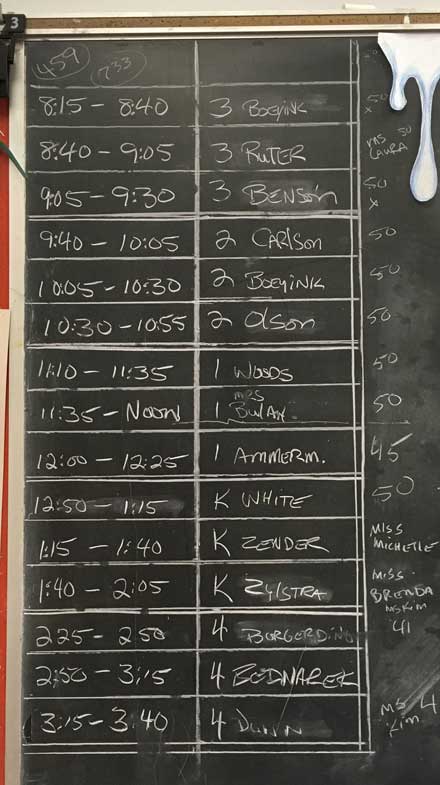 3
459 733
8:15 - 8:40 3 Boeyink 50 x
8:40 - 9:05 3 Ruter ms Laura 50
9:05 - 9:30 3 Benson 50 x
9:40 - 10:05 2 Carlson 50
10:05 - 10:30 2 Boeyink 50
10:30 - 10:55 2 Olson 50
11:10 - 11:35 1 Woods 50
11:35 - Noon 1 mrs 50
12:00 - 12:25 1 Ammerm. 45
12:50 - 1:15 K White 50
1:15 - 1:40 K Zender Miss Michelle
1:40 - 2:05 K Zylstra Miss Brenda
ms Kim
2:25 - 2:50 4 Borgerding 41
2:50 - 3:15 4 Bednarek
3:15 - 3:40 4 Dunn ms Kim 4